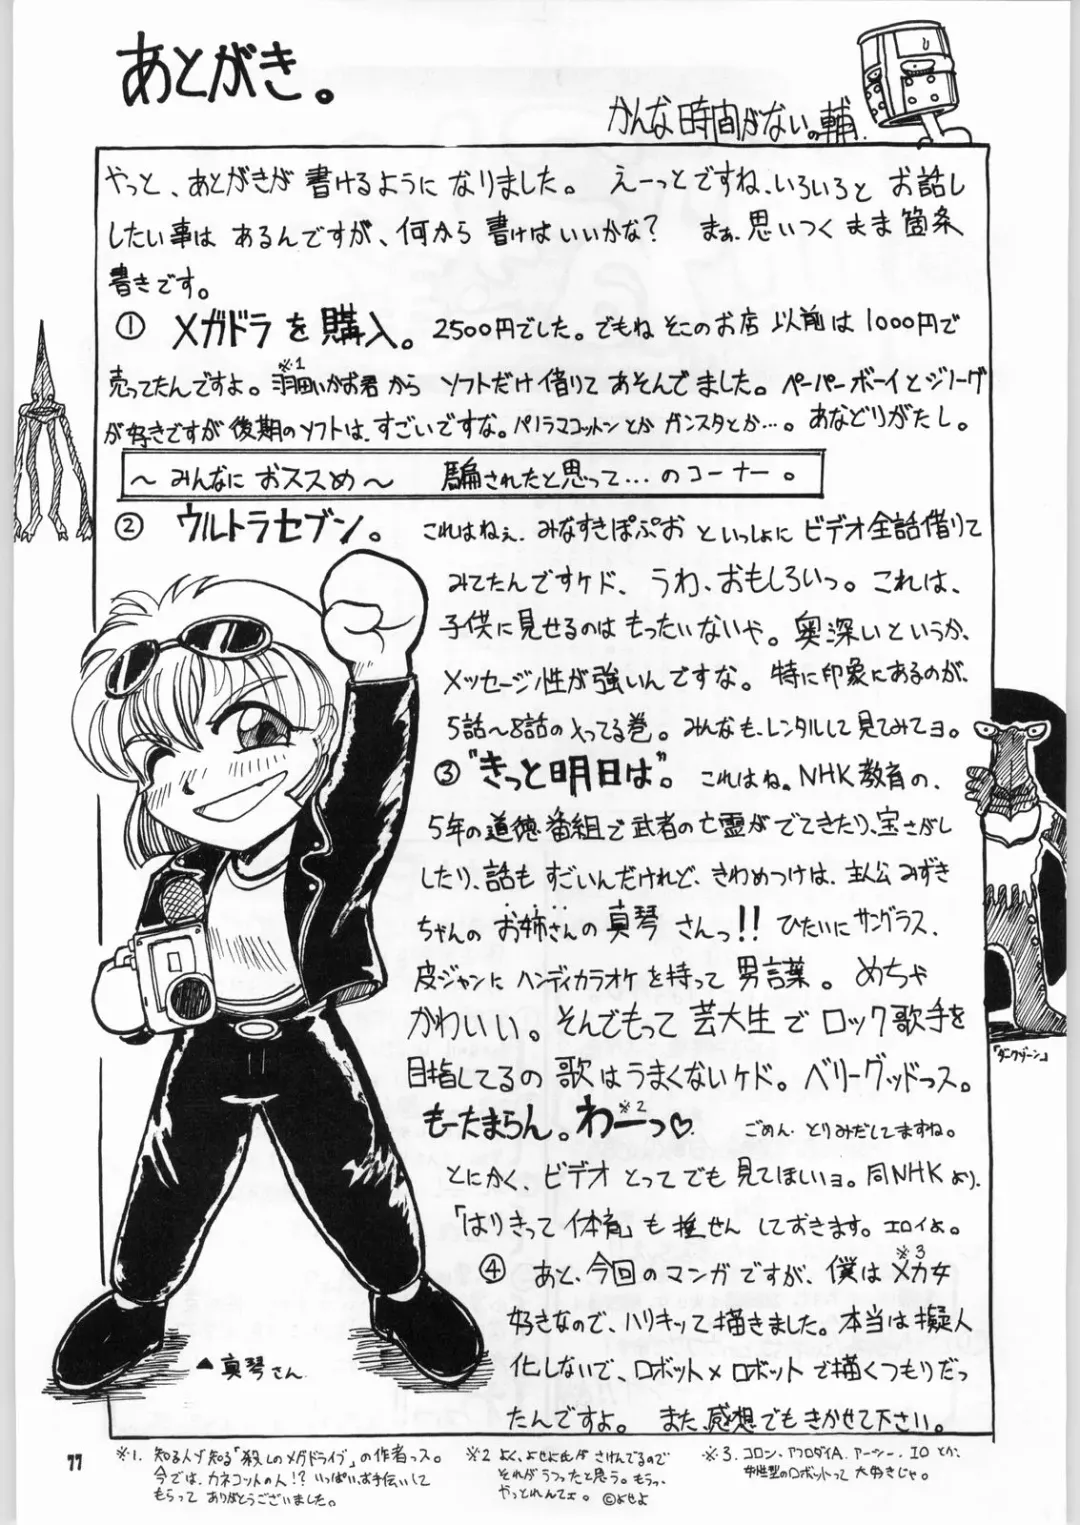 あとがき。
かんな時間がないの輔
やっと、あとがきが書けるようになりました。えーっとですね、いろいろとお話し
したい事はあるんですが、何から書けばいいかな?まぁ、思いつくまま箇条
書きです。
① メガドラを購入。2500円でした。でもねそこのお店以前は1000円で
売ってたんですよ。羽田いかお君※1からソフトだけ借りてあそんでました。ペーパーボーイとジノーグ
が好きですが後期のソフトは、すごいですな。パノラマコットンとかガンスタとか…。あなどりがたし。
〜みんなにおススめ〜 騙されたと思って…のコーナー。
② ウルトラセブン。これはねぇ、みなすきぽぷおといっしょにビデオ全話借りて
みてたんですケド、うわ、おもしろいっ。これは、
子供に見せるのはもったいないや。奥深いというか、
メッセージ性が強いんですな。特に印象にあるのが、
5話〜8話の入ってる巻。みんなも、レンタルして見てみてョ。
③ "きっと明日は"。これはね。NHK教育の、
5年の道徳番組で武者の亡霊がでてきたり、宝さがし
したり、話もすごいんだけれど、きわめつけは、主人公みずき
ちゃんのお姉さんの真琴さんっ!!ひたいにサングラス、
皮ジャンにハンディカラオケを持って男言葉。めちゃ
かわいい。そんでもって芸大生でロック歌手を
目指してるの歌はうまくないケド。ベリーグッドっス。
もーたまらん。わーっ※2♡ ごめん、とりみだしてますね。
とにかく、ビデオとってでも見てほしいョ。同NHKより、
「はりきって体育」も推せんしておきます。エロイよ。
④ あと、今回のマンガですが、僕はメカ女※3
好きなので、ハリキッて描きました。本当は擬人
化しないで、ロボット×ロボットで描くつもりだっ
たんですよ。また、感想でもきかせて下さい。
『ダークゾーン』
▲真琴さん
77
※1. 知る人ゾ知る「殺しのメガドライブ」の作者っス。
今では、カネコットの人!?いっぱいお手伝いして
もらってありがとうございました。
※2 よく、よせよ氏がさけんでるので
それがうつったと思う。もうっ、
やっとれんてェ。©よせよ
※3. コロン、アフロダイA、アーシー、IOとか、
女性型のロボットって大好きじゃ。